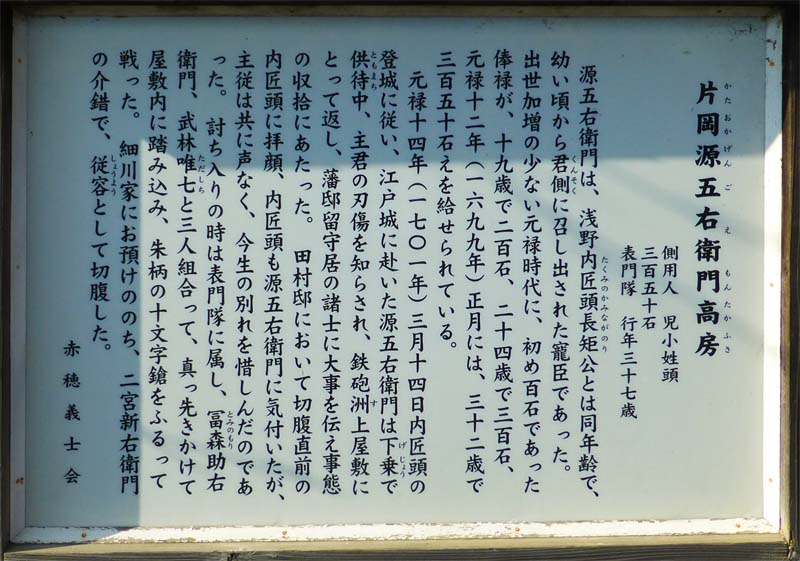 片岡源五右衛門高房
かたおかげんごえもんたかふさ
側用人　児小姓頭
三百五十石
表門隊　行年三十七歳
源五右衛門は、浅野内匠頭長矩公とは同年齢で、
たくみのかみながのり
幼い頃から君側に召し出された寵臣であった。
くんそく
出世加増の少ない元禄時代に、初め百石であった
俸禄が、十九歳で二百石、二十四歳で三百石、
元禄十二年（一六九九年）正月には、三十二歳で
三百五十石えを給せられている。
元禄十四年（一七〇一年）三月十四日内匠頭の
登城に従い、江戸城に赴いた源五右衛門は下乗で
げじょう
供待中、主君の刃傷を知らされ、鉄砲洲上屋敷に
ともまち
す
とって返し、藩邸留守居の諸士に大事を伝え事態
の収拾にあたった。　田村邸において切腹直前の
内匠頭に拝顔、内匠頭も源五右衛門に気付いたが、
主従は共に声なく、今生の別れを惜しんだのであ
った。　討ち入りの時は表門隊に属し、冨森助右
とみのもり
衛門、武林唯七と三人組合って、真っ先きかけて
ただしち
屋敷内に踏み込み、朱柄の十文字鎗をふるって
戦った。　細川家にお預けののち、二宮新右衛門
の介錯で、従容として切腹した。
しょうよう
赤穂義士会